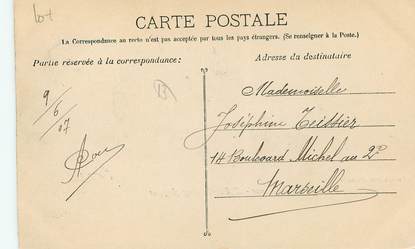 lot
CARTE POSTALE
La Correspondance au recto n'est pas acceptée par tous les pays étrangers. (Se renseigner à la Poste.)
Partie réservée à la correspondance:
Adresse du destinataire
9/6/07
Mademoiselle
Joséphine Teissier
14 Boulevard Michel au 2º
Marseille